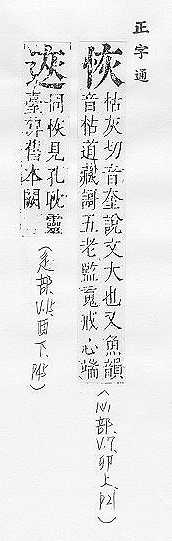 正字通
恢
枯灰切音奎說文大也又魚韻
音枯道藏謌五老監戒心端
(心部.V.7.卯上.P21)
同恢見孔耽靈
臺碑舊本闕
(辵部.V.15.酉下.P45)